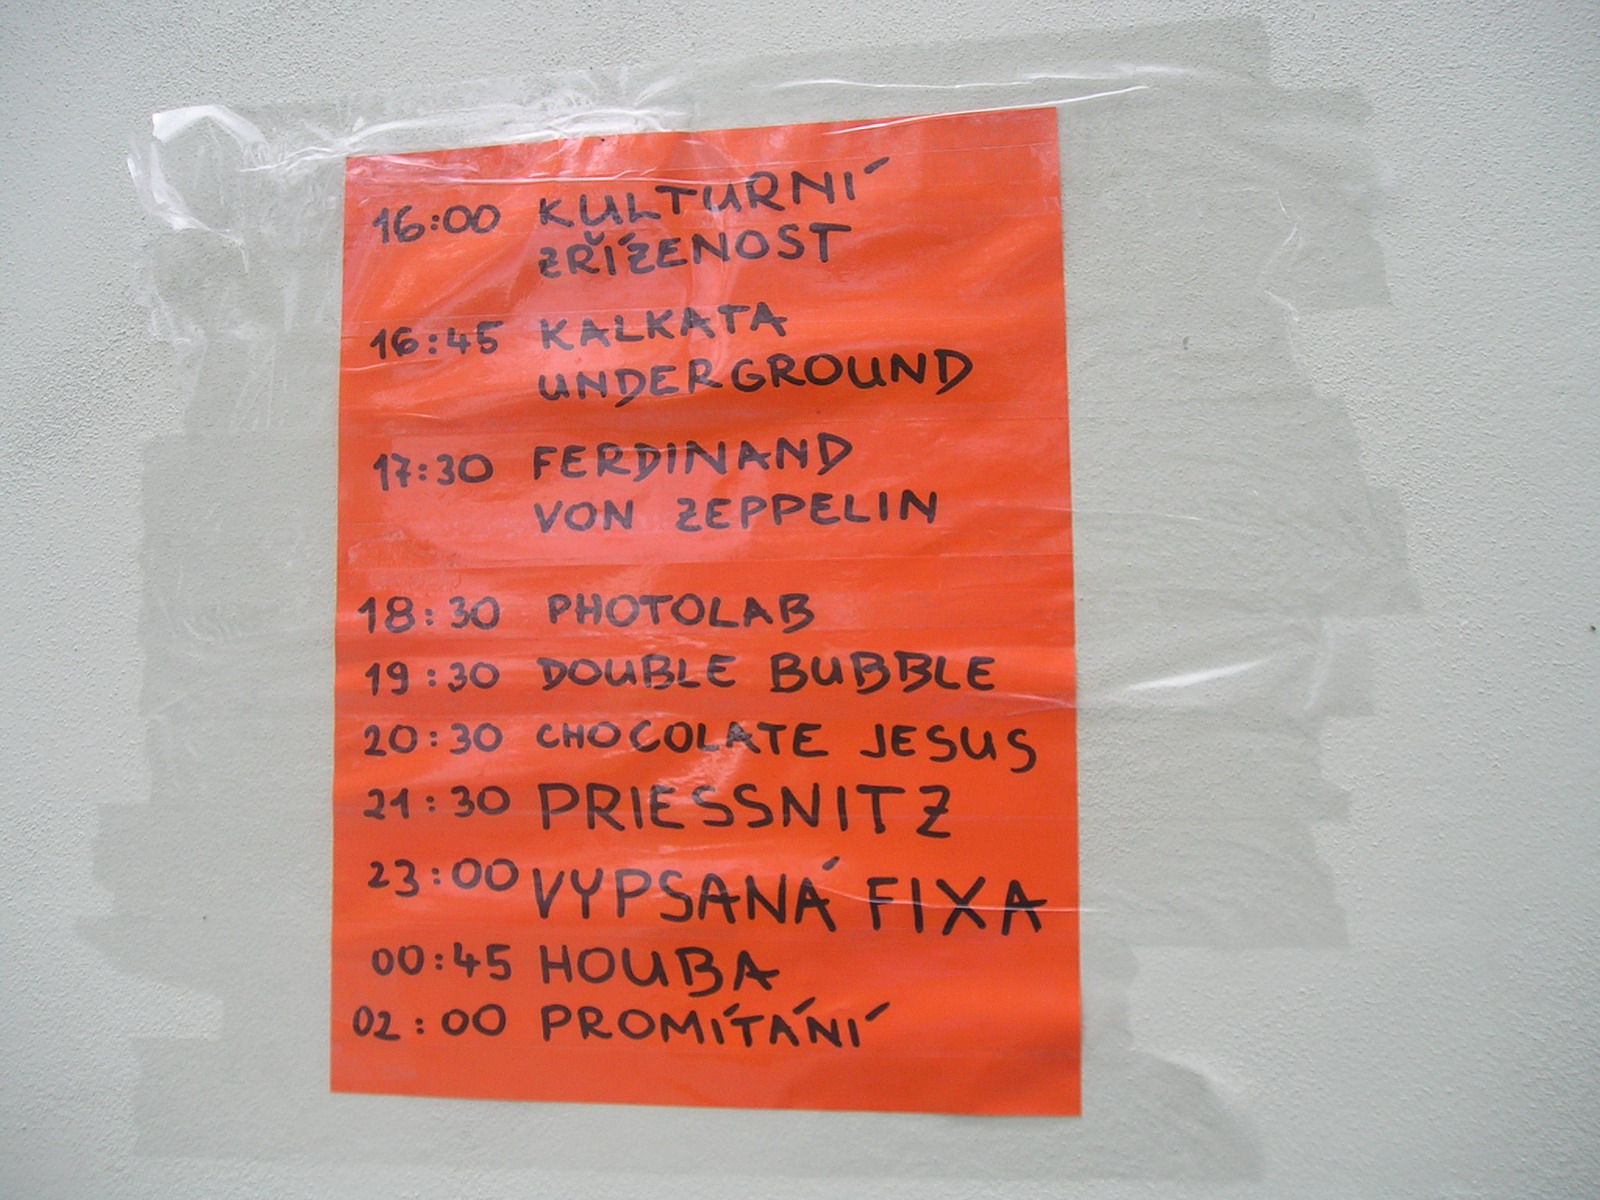 16:00 KULTURNÍ
ZŘÍŽENOST
16:45 KALKATA
UNDERGROUND
17:30 FERDINAND
VON ZEPPELIN
18:30 PHOTOLAB
19:30 DOUBLE BUBBLE
20:30 CHOCOLATE JESUS
21:30 PRIESSNITZ
23:00 VYPSANÁ FIXA
00:45 HOUBA
02:00 PROMÍTÁNÍ